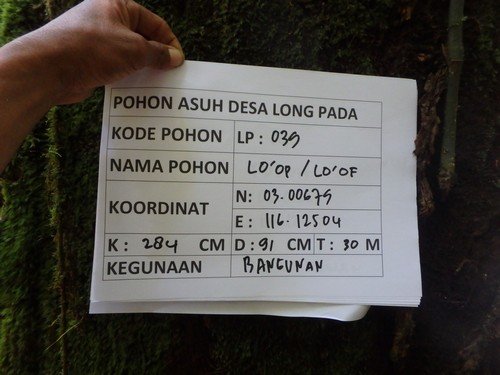 POHON ASUH DESA LONG PADA
KODE POHON LP : 039
NAMA POHON LO'OP / LO'OF
KOORDINAT N: 03.00679
E : 116.12504
K : 284 CM D : 91 CM T : 30 M
KEGUNAAN BANGUNAN